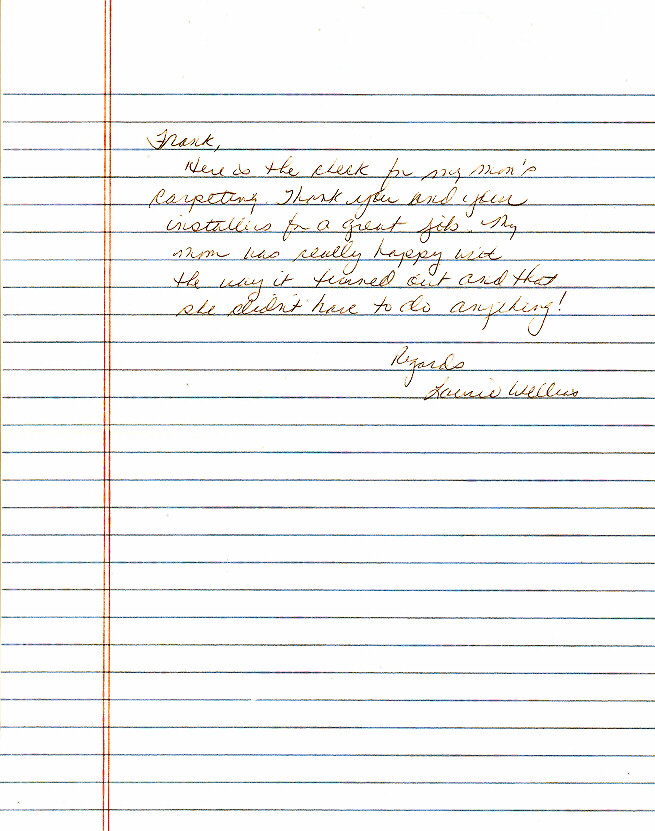 Frank,
Here is the check for my mom's
carpeting. Thank you and your
installers for a great job. My
mom was really happy with
the way it turned out and that
she didn't have to do anything!
Regards